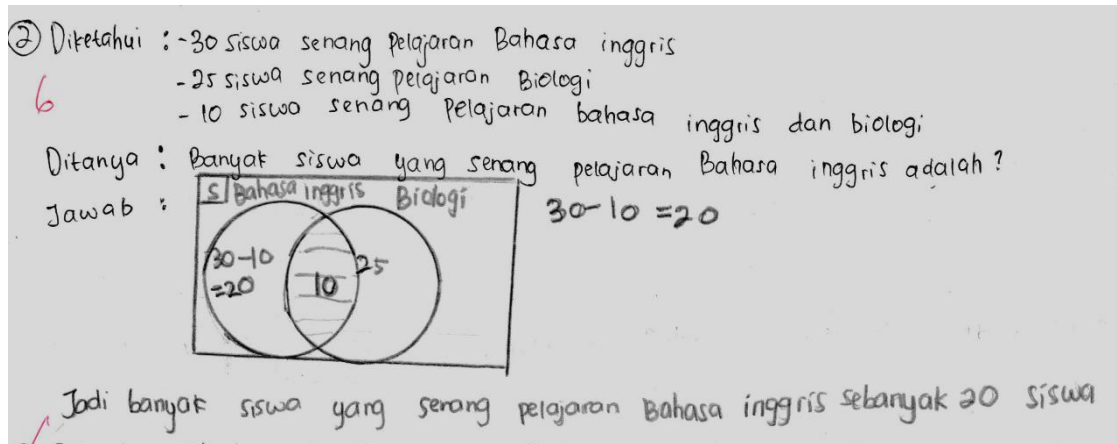 ② Diketahui : - 30 siswa senang pelajaran Bahasa inggris
- 25 siswa senang pelajaran Biologi
6
- 10 siswa senang pelajaran bahasa inggris dan biologi
Ditanya : Banyak siswa yang senang pelajaran Bahasa inggris adalah ?
Jawab :
S Bahasa inggris Biologi
30-10 = 20
30-10
=20
10
25
Jadi banyak siswa yang senang pelajaran Bahasa inggris sebanyak 20 siswa